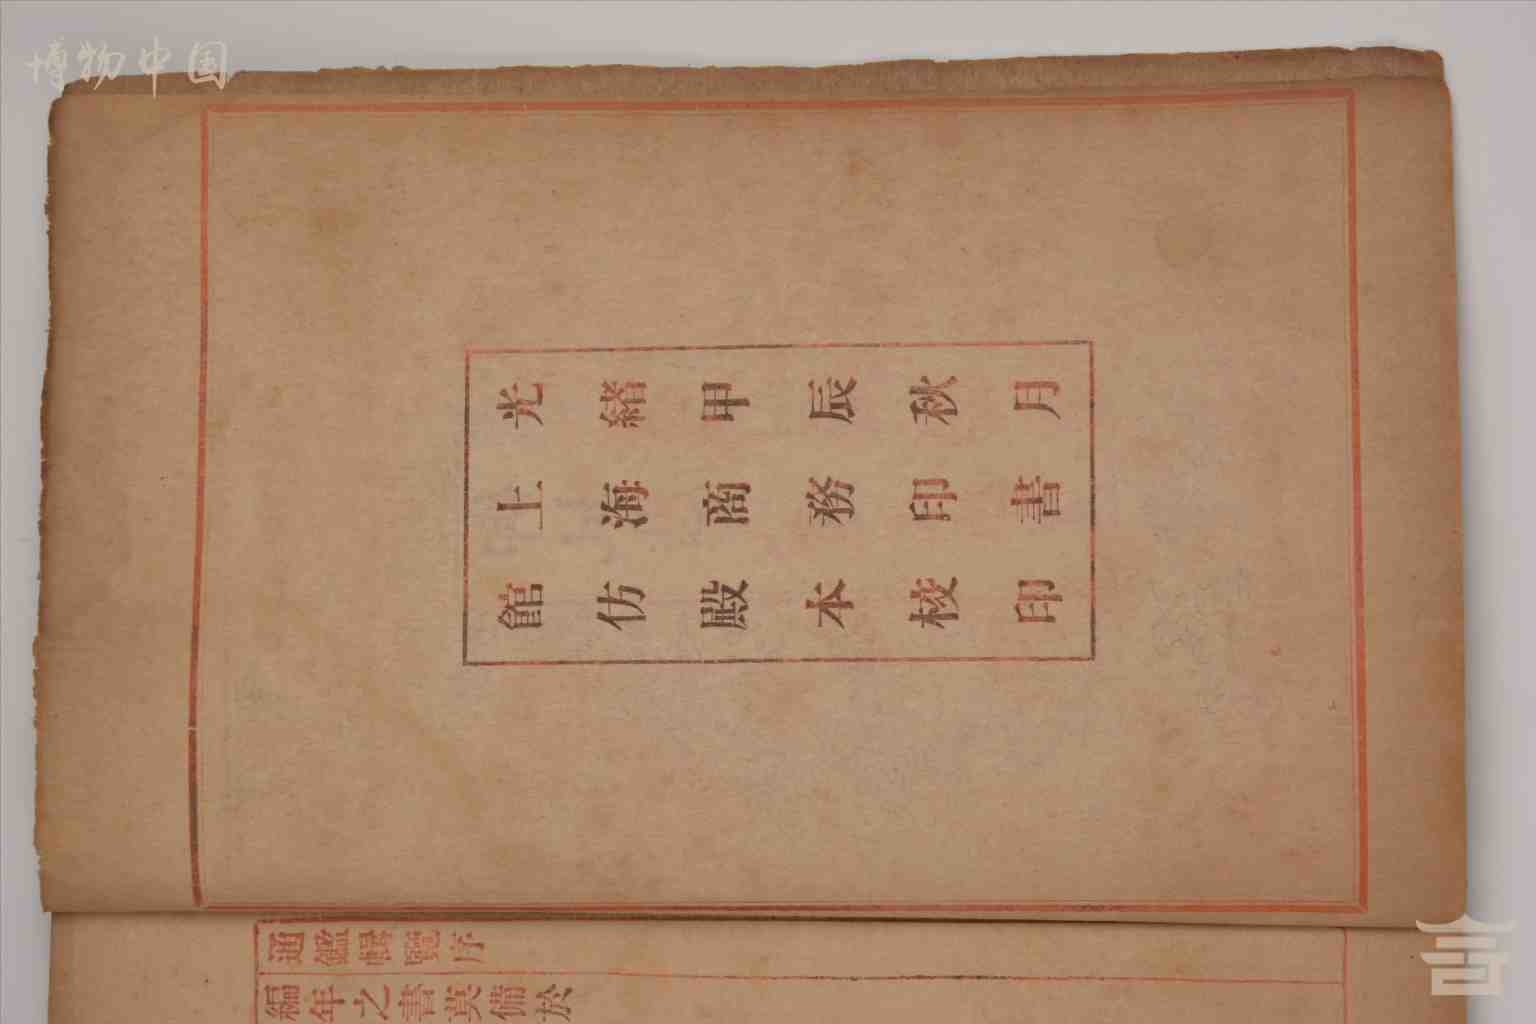 博物中国
光緒甲辰秋月
上海商務印書
館仿殿本校印
通鑑輯覽序
編年之書莫備於